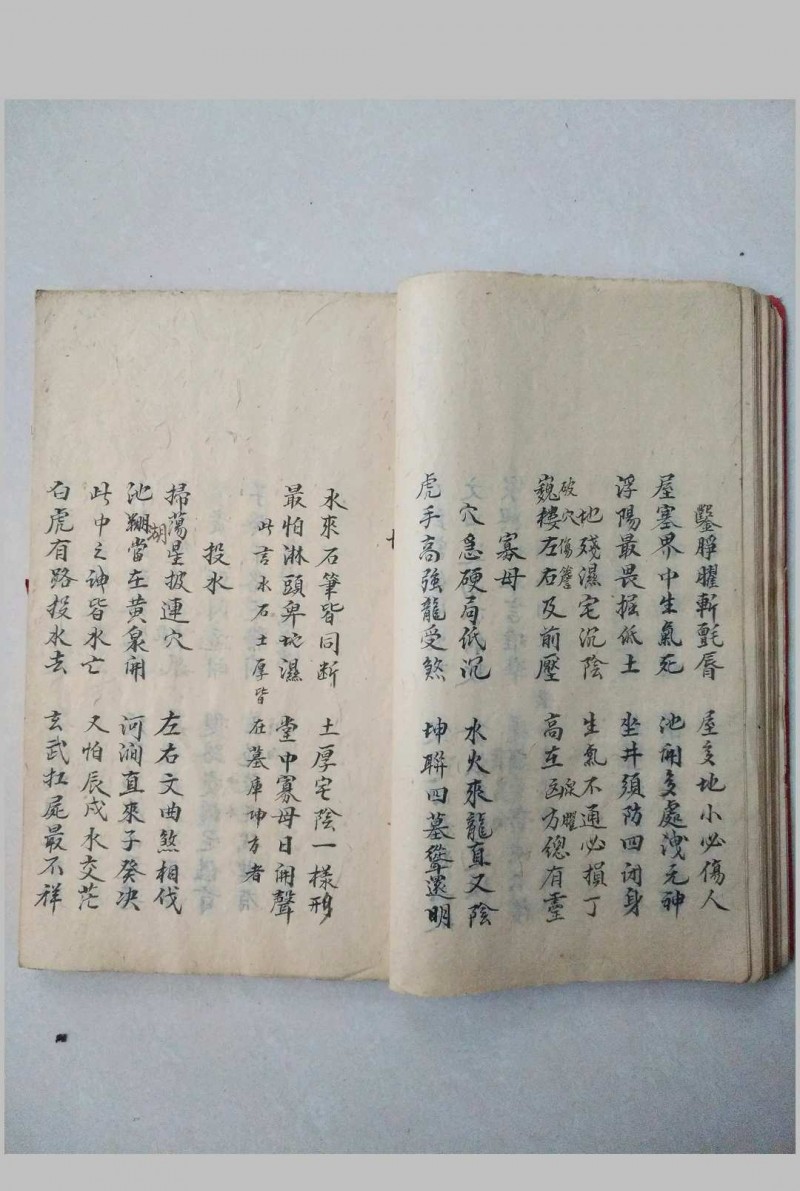 鑿睜曜斬氈唇　屋多地小必傷人
屋塞界中生氣死　池開多處洩元神
浮陽最畏掘低土　坐井須防四闭身
地殘濕宅沉陰　生氣不通必損丁
破穴傷簷　泉曜
巍樓左右及前壓　高在凶方總有靈
寡母
穴急硬局低沉　水火來龍直又陰
虎手高強龍受煞　坤聯四墓聳還明
水來石筆皆同断　土厚宅陰一樣形
最怕淋頭卑地濕　堂中寡母日開聲
此言水石土厚皆在墓庫坤方者
投水
掃蕩星披連穴　左右文曲煞相伐
池當在黃泉開　河澗直來子癸决
湖
此中之神皆水亡　又怕辰戌水交茫
白虎有路投水去　玄武扛屍最不祥